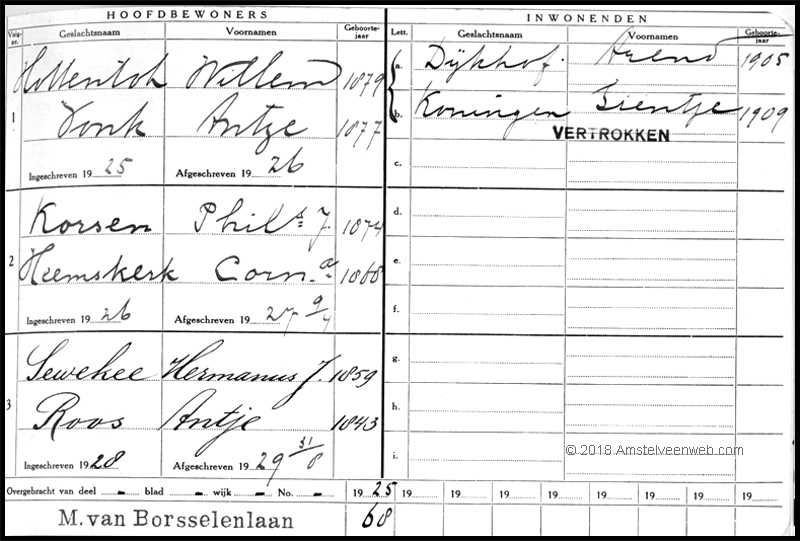 HOOFDBEWONERS
INWONENDEN
Volg-nr. Geslachtsnaam Voornamen Geboorte-jaar Lett. Geslachtsnaam Voornamen Geboorte-jaar
1 Hottentot Willem 1879
Vonk Antje 1877
Ingeschreven 1925 Afgeschreven 1926
a. Dijkhof. Arend 1905
b. Koningen Sientje 1909
VERTROKKEN
c.
2 Korsen Phils. J. 1874
Heemskerk Corn.a 1868
Ingeschreven 1926 Afgeschreven 1927 9/4
d.
e.
f.
3 Sewekee Hermanus J. 1859
Roos Antje 1843
Ingeschreven 1928 Afgeschreven 1929 31/8
g.
h.
i.
© 2018 Amstelveenweb.com
Overgebracht van deel - blad - wijk - No. - 1925 19 19 19 19 19 19 19 19
M. van Borsselenlaan 68